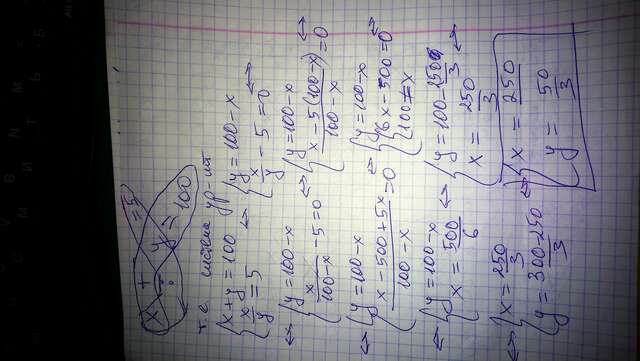 x + y = 100
÷ = 5
т.е. система ур-ий
{ x + y = 100
x/y = 5
⇔ { y = 100 - x
x/y - 5 = 0 ⇔
⇔ { y = 100 - x
x/(100 - x) - 5 = 0
⇔ { y = 100 - x
(x - 5(100 - x))/(100 - x) = 0 ⇔
⇔ { y = 100 - x
(x - 500 + 5x)/(100 - x) = 0
⇔ { y = 100 - x
6x - 500 = 0
100 ≠ x ⇔
⇔ { y = 100 - x
x = 500/6
⇔ { y = 100 - 250/3
x = 250/3 ⇔
⇔ { x = 250/3
y = (300 - 250)/3
⇔ { x = 250/3
y = 50/3